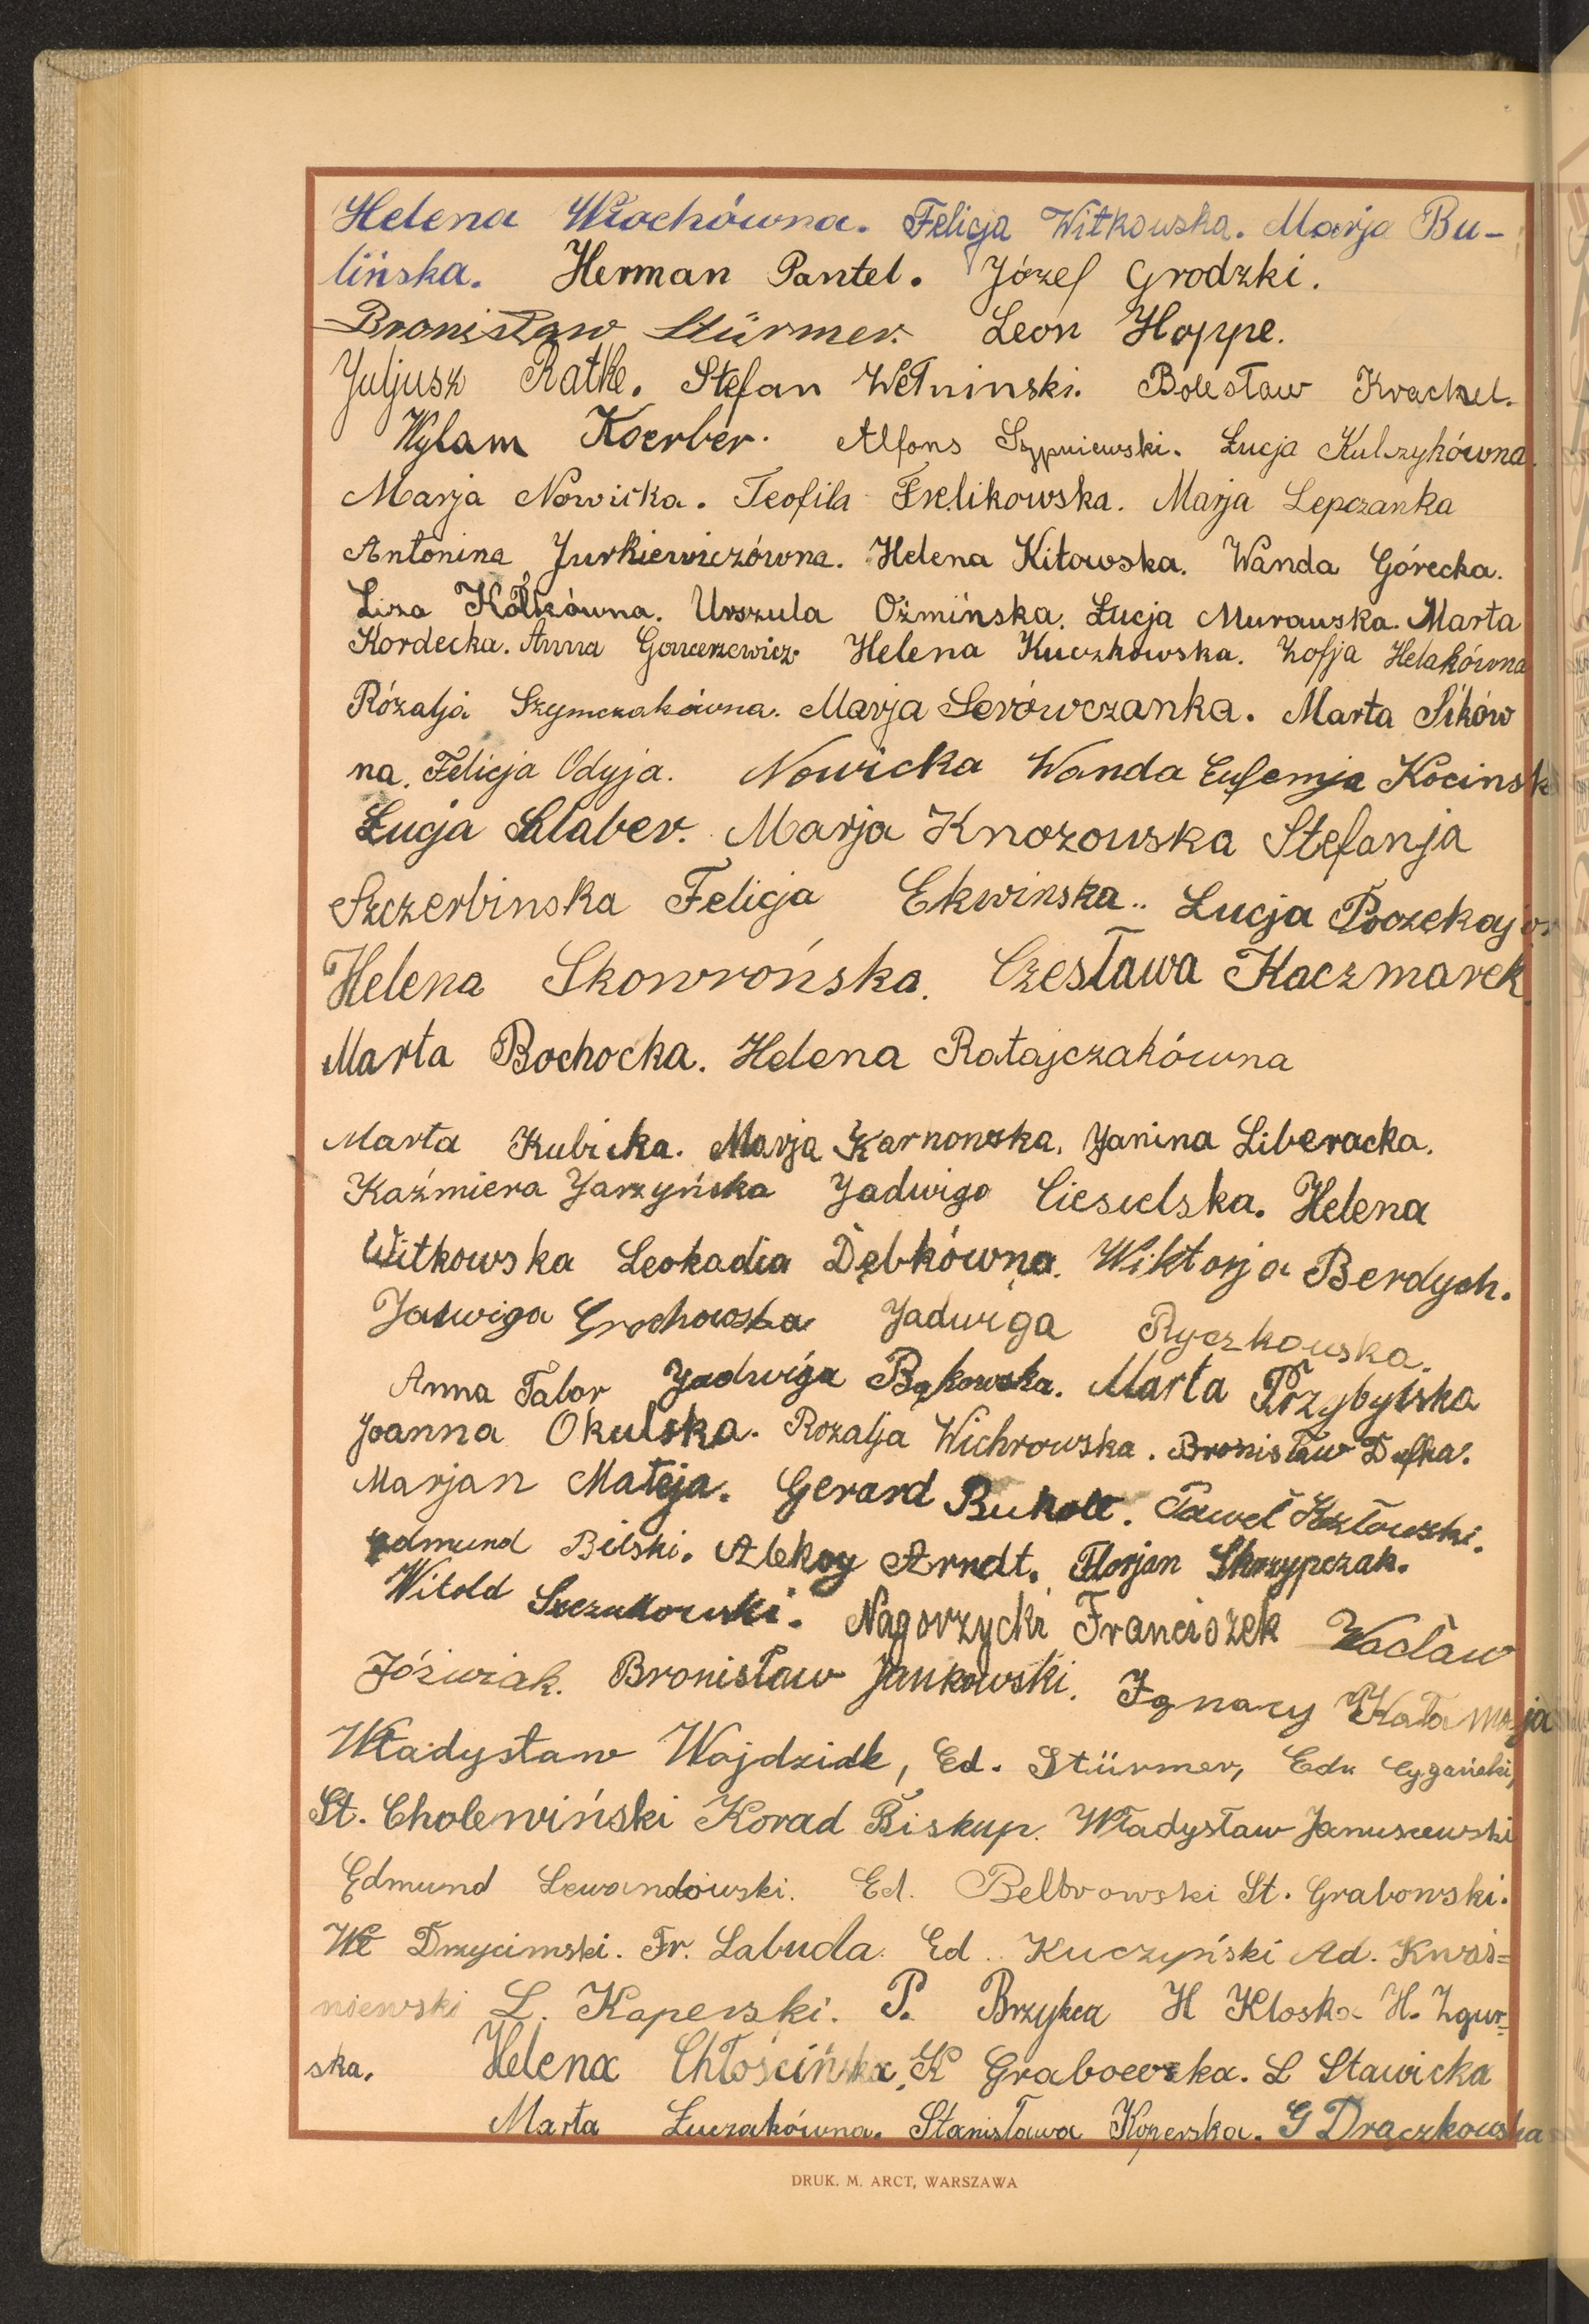 Helena Włochówna. Felicja Witkowska. Marja Bu-
lińska. Herman Pantel. Józef Grodzki.
Bronisław Stürmer. Leon Hoppe.
Juljusz Ratke. Stefan Wełninski. Bolesław Krachel.
Wylam Koerber. Alfons Szypniewski. Łucja Kulczykówna.
Marja Nowicka. Teofila Felikowska. Marja Lepczanka
Antonina Jurkiewiczówna. Helena Kitowska. Wanda Górecka.
Liza Kołkówna. Urszula Oźmińska. Łucja Murawska. Marta
Kordecka. Anna Goncerzewicz Helena Kuczkowska. Zofja Helakówna
Rózalja Szymczakówna. Marja Serówczanka. Marta Sików
na. Felicja Odyja. Nowicka Wanda Eufemja Kocinsk
Łucja Slaber. Marja Knozowska Stefanja
Szczerbinska Felicja Ekwinska.. Łucja Poczekaj
Helena Skowrońska. Czesława Kaczmarek
Marta Bochocka. Helena Ratajczakówna
Marta Kubicka. Marja Karnowska. Janina Liberacka.
Kaźmiera Jarzyńska Jadwiga Ciesielska. Helena
Witkowska Leokadia Dębkówna. Wiktorja Berdych.
Jadwiga Grochowska Jadwiga Ryczkowska.
Anna Talor Jadwiga Bąkowska. Marta Przybylska
Joanna Okulska. Rozalja Wichrowska. Bronisław Defka.
Marjan Mateja. Gerard Bukolt. Paweł Kozłowski.
Edmund Bilski. Aleksy Arndt. Florjan Skrzypczak.
Witold Szczukowski. Nagorzycki Franciszek Wacław
Jóźwiak. Bronisław Jankowski. Ignacy Kałamaja
Władysław Wojdziak, Ed. Stürmer, Edu Cygański,
St. Cholewiński Korad Biskup. Władysław Januszewski
Edmund Lewandowski. Ed. Belbrowski St. Grabowski.
Wł Drzycimski. Fr. Labuda. Ed. Kuczyński Ad. Kwaś=
niewski L. Kaperski. P. Brzyska H Kloska H. Zgur=
ska. Helena Chłościńska. K Grabowska. L Stawicka
Marta Łuczakówna. Stanisława Koperska. G Drączkowska
DRUK. M. ARCT, WARSZAWA